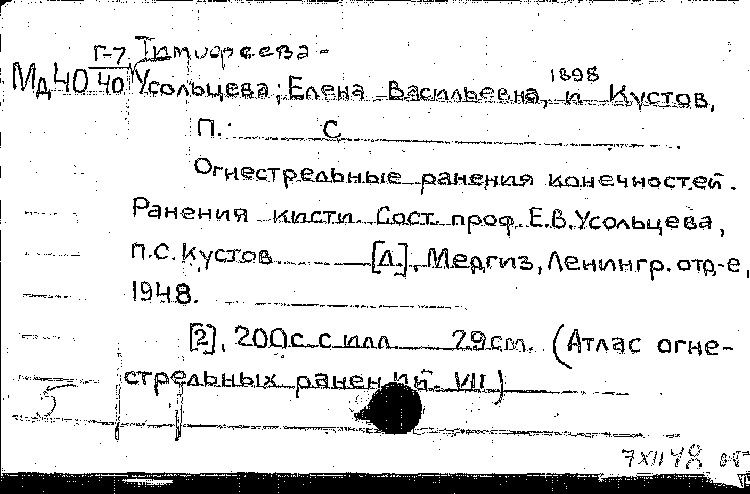 Г-7 Тимофеева-
Мд40 40 Усольцева, Елена Васильевна, 1898 и Кустов,
П. С.
Огнестрельные ранения конечностей.
Ранения кисти. Сост. проф. Е.В. Усольцева,
П.С. Кустов [Л.], Медгиз, Ленингр. отд-е,
1948.
[2], 200с. с илл. 29см. (Атлас огне-
стрельных ранений. VII)
5
7 XII 48